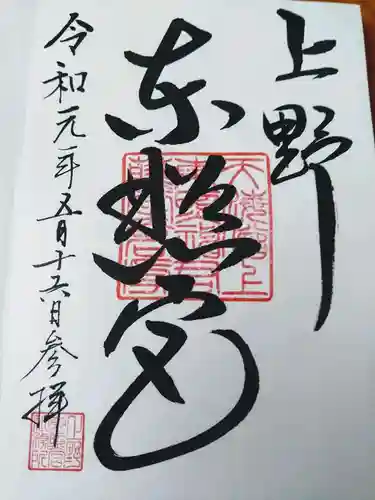 上野
東照宮
令和元年五月十六日参拝